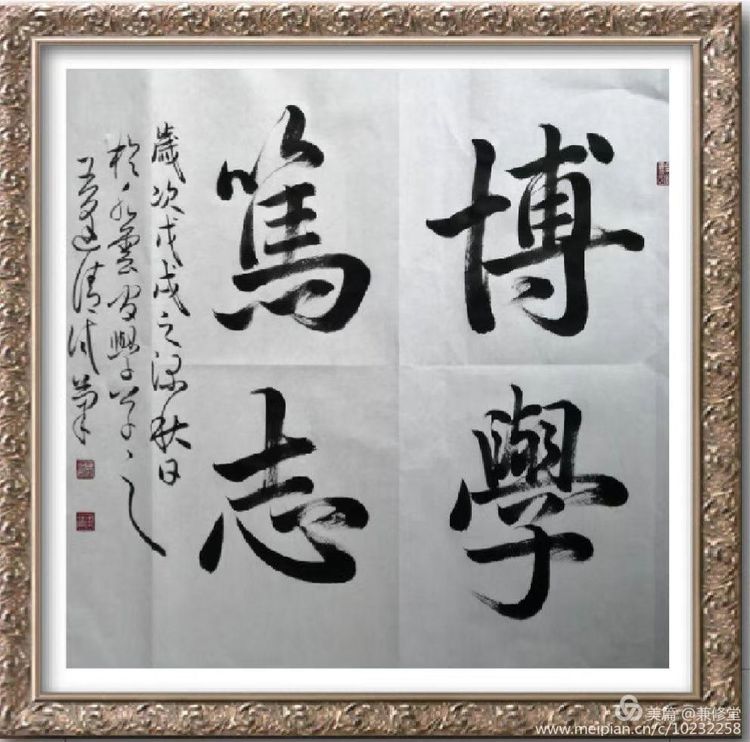 博學
篤志
歲次戊戌之深秋日
於 雲 學 之
清 筆
美篇@兼修堂
www.meipian.cn/c/10232258